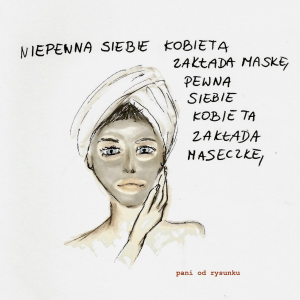 NIEPEWNA SIEBIE KOBIETA
ZAKŁADA MASKĘ,
PEWNA
SIEBIE
KOBIETA
ZAKŁADA
MASECZKĘ,
pani od rysunku